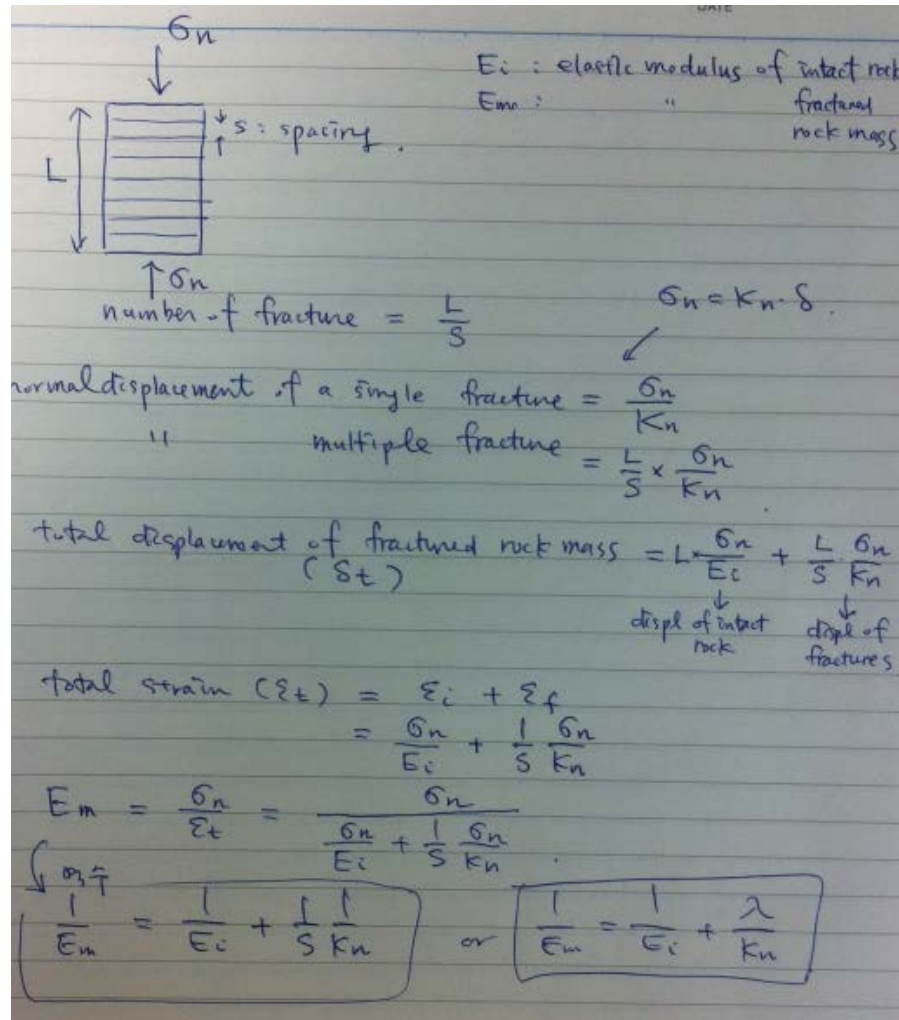 DATE
σn
Ei : elastic modulus of intact rock
Em : " fractured
rock mass
s : spacing.
L
σn
number of fracture = L/S
σn = Kn · δ.
normal displacement of a single fracture = σn/Kn
" multiple fracture = L/S × σn/Kn
total displacement of fractured rock mass = L · σn/Ei + L/S · σn/Kn
(δt)
displ of intact rock
displ of fractures
total strain (εt) = εi + εf
= σn/Ei + 1/S σn/Kn
Em = σn/εt = σn / (σn/Ei + 1/S σn/Kn)
역수
1/Em = 1/Ei + 1/S 1/Kn or 1/Em = 1/Ei + λ/Kn